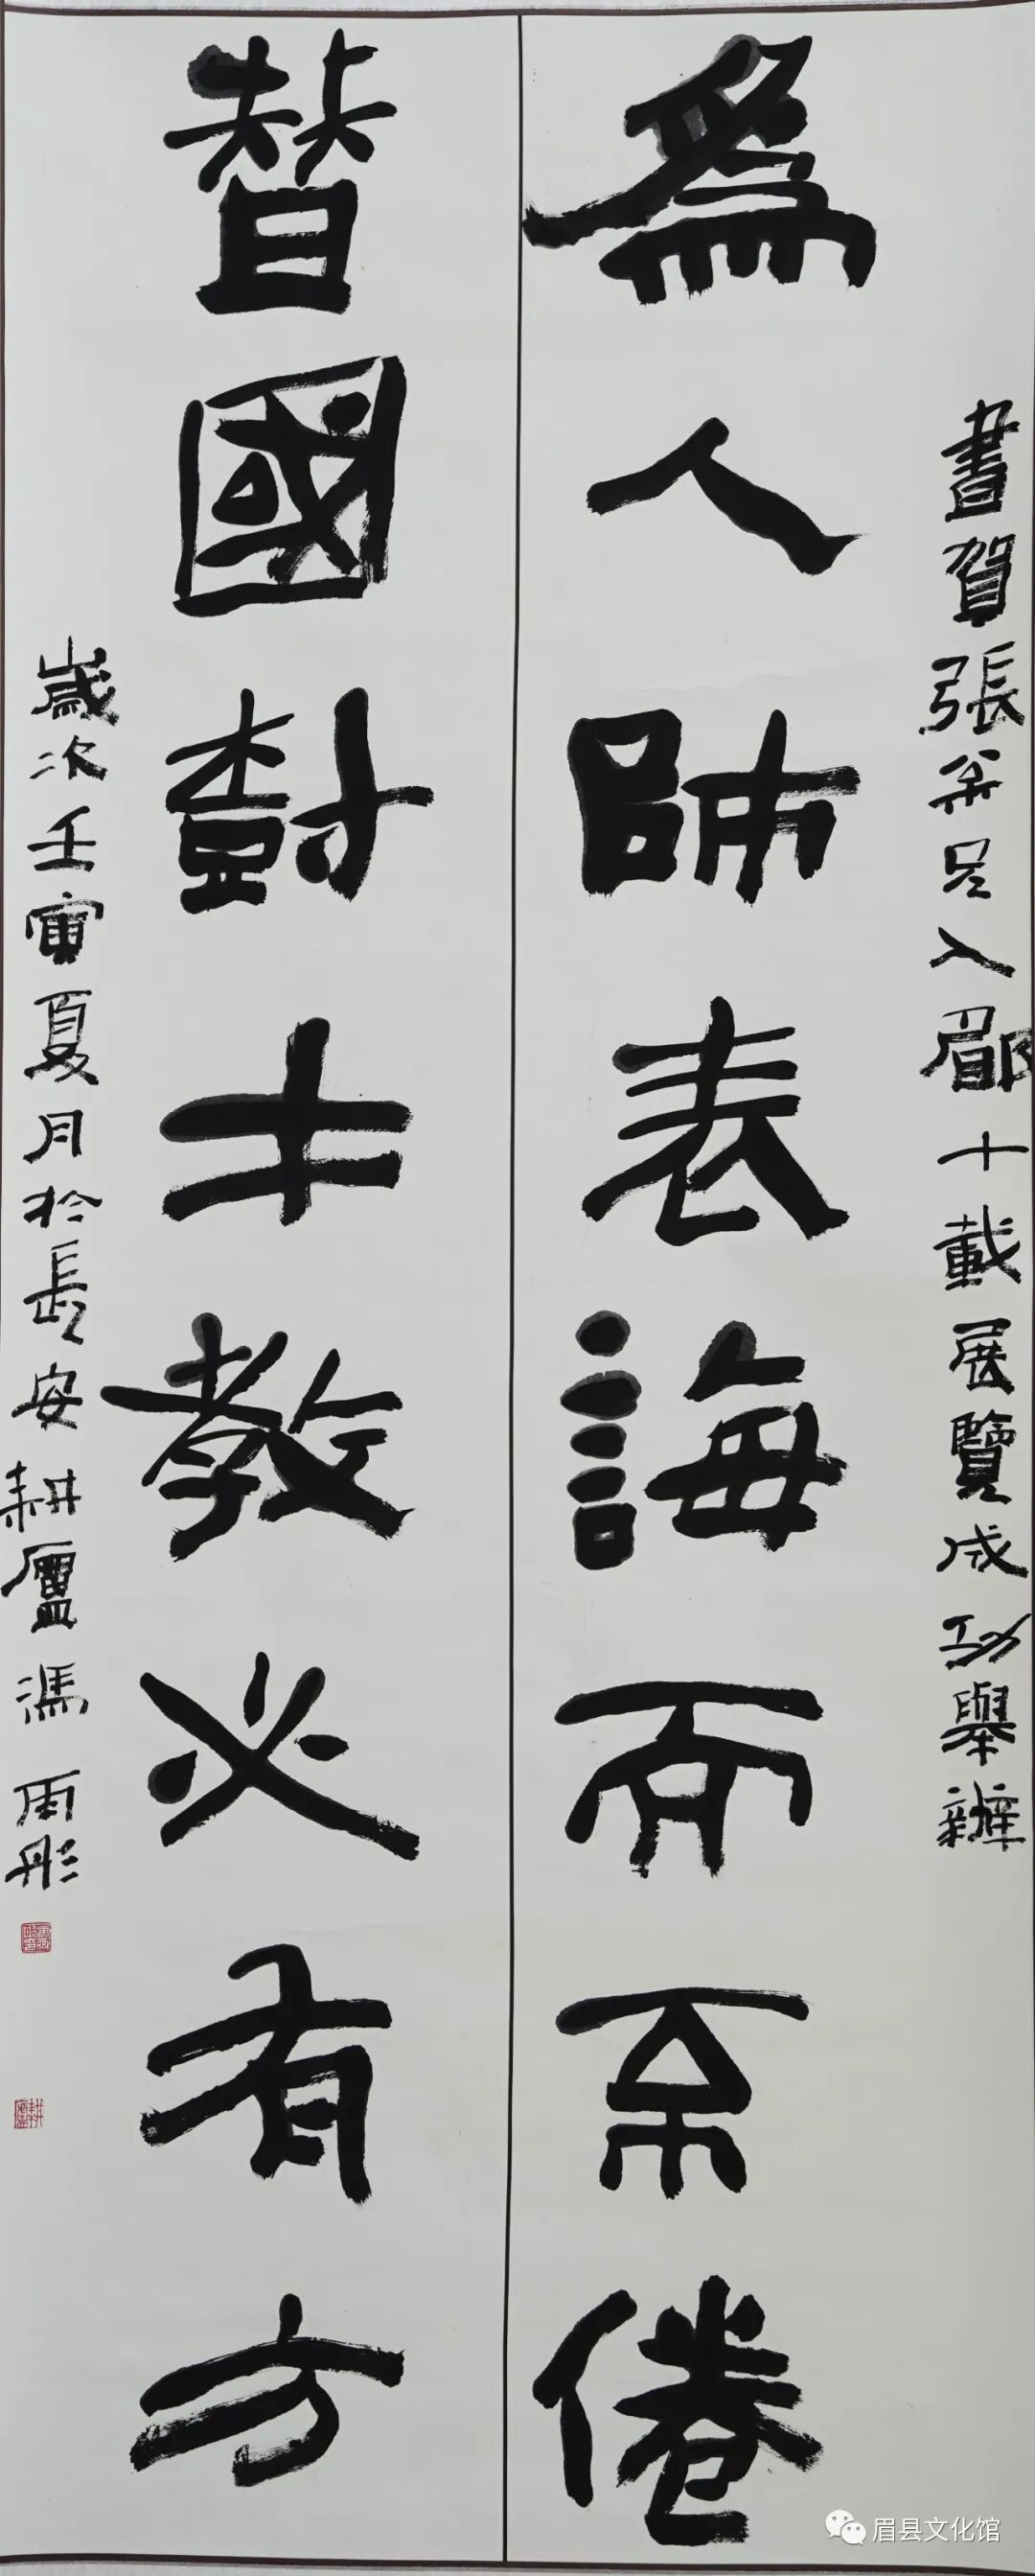 書賀張兄入郿十載展覽成功舉辦
爲人師表誨而不倦
替國尌才教必有方
歲次壬寅夏月於長安耕廬馮雨彤
眉县文化馆